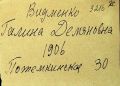 Видменко
Галина Демяновна
1906
Потемкинская 30